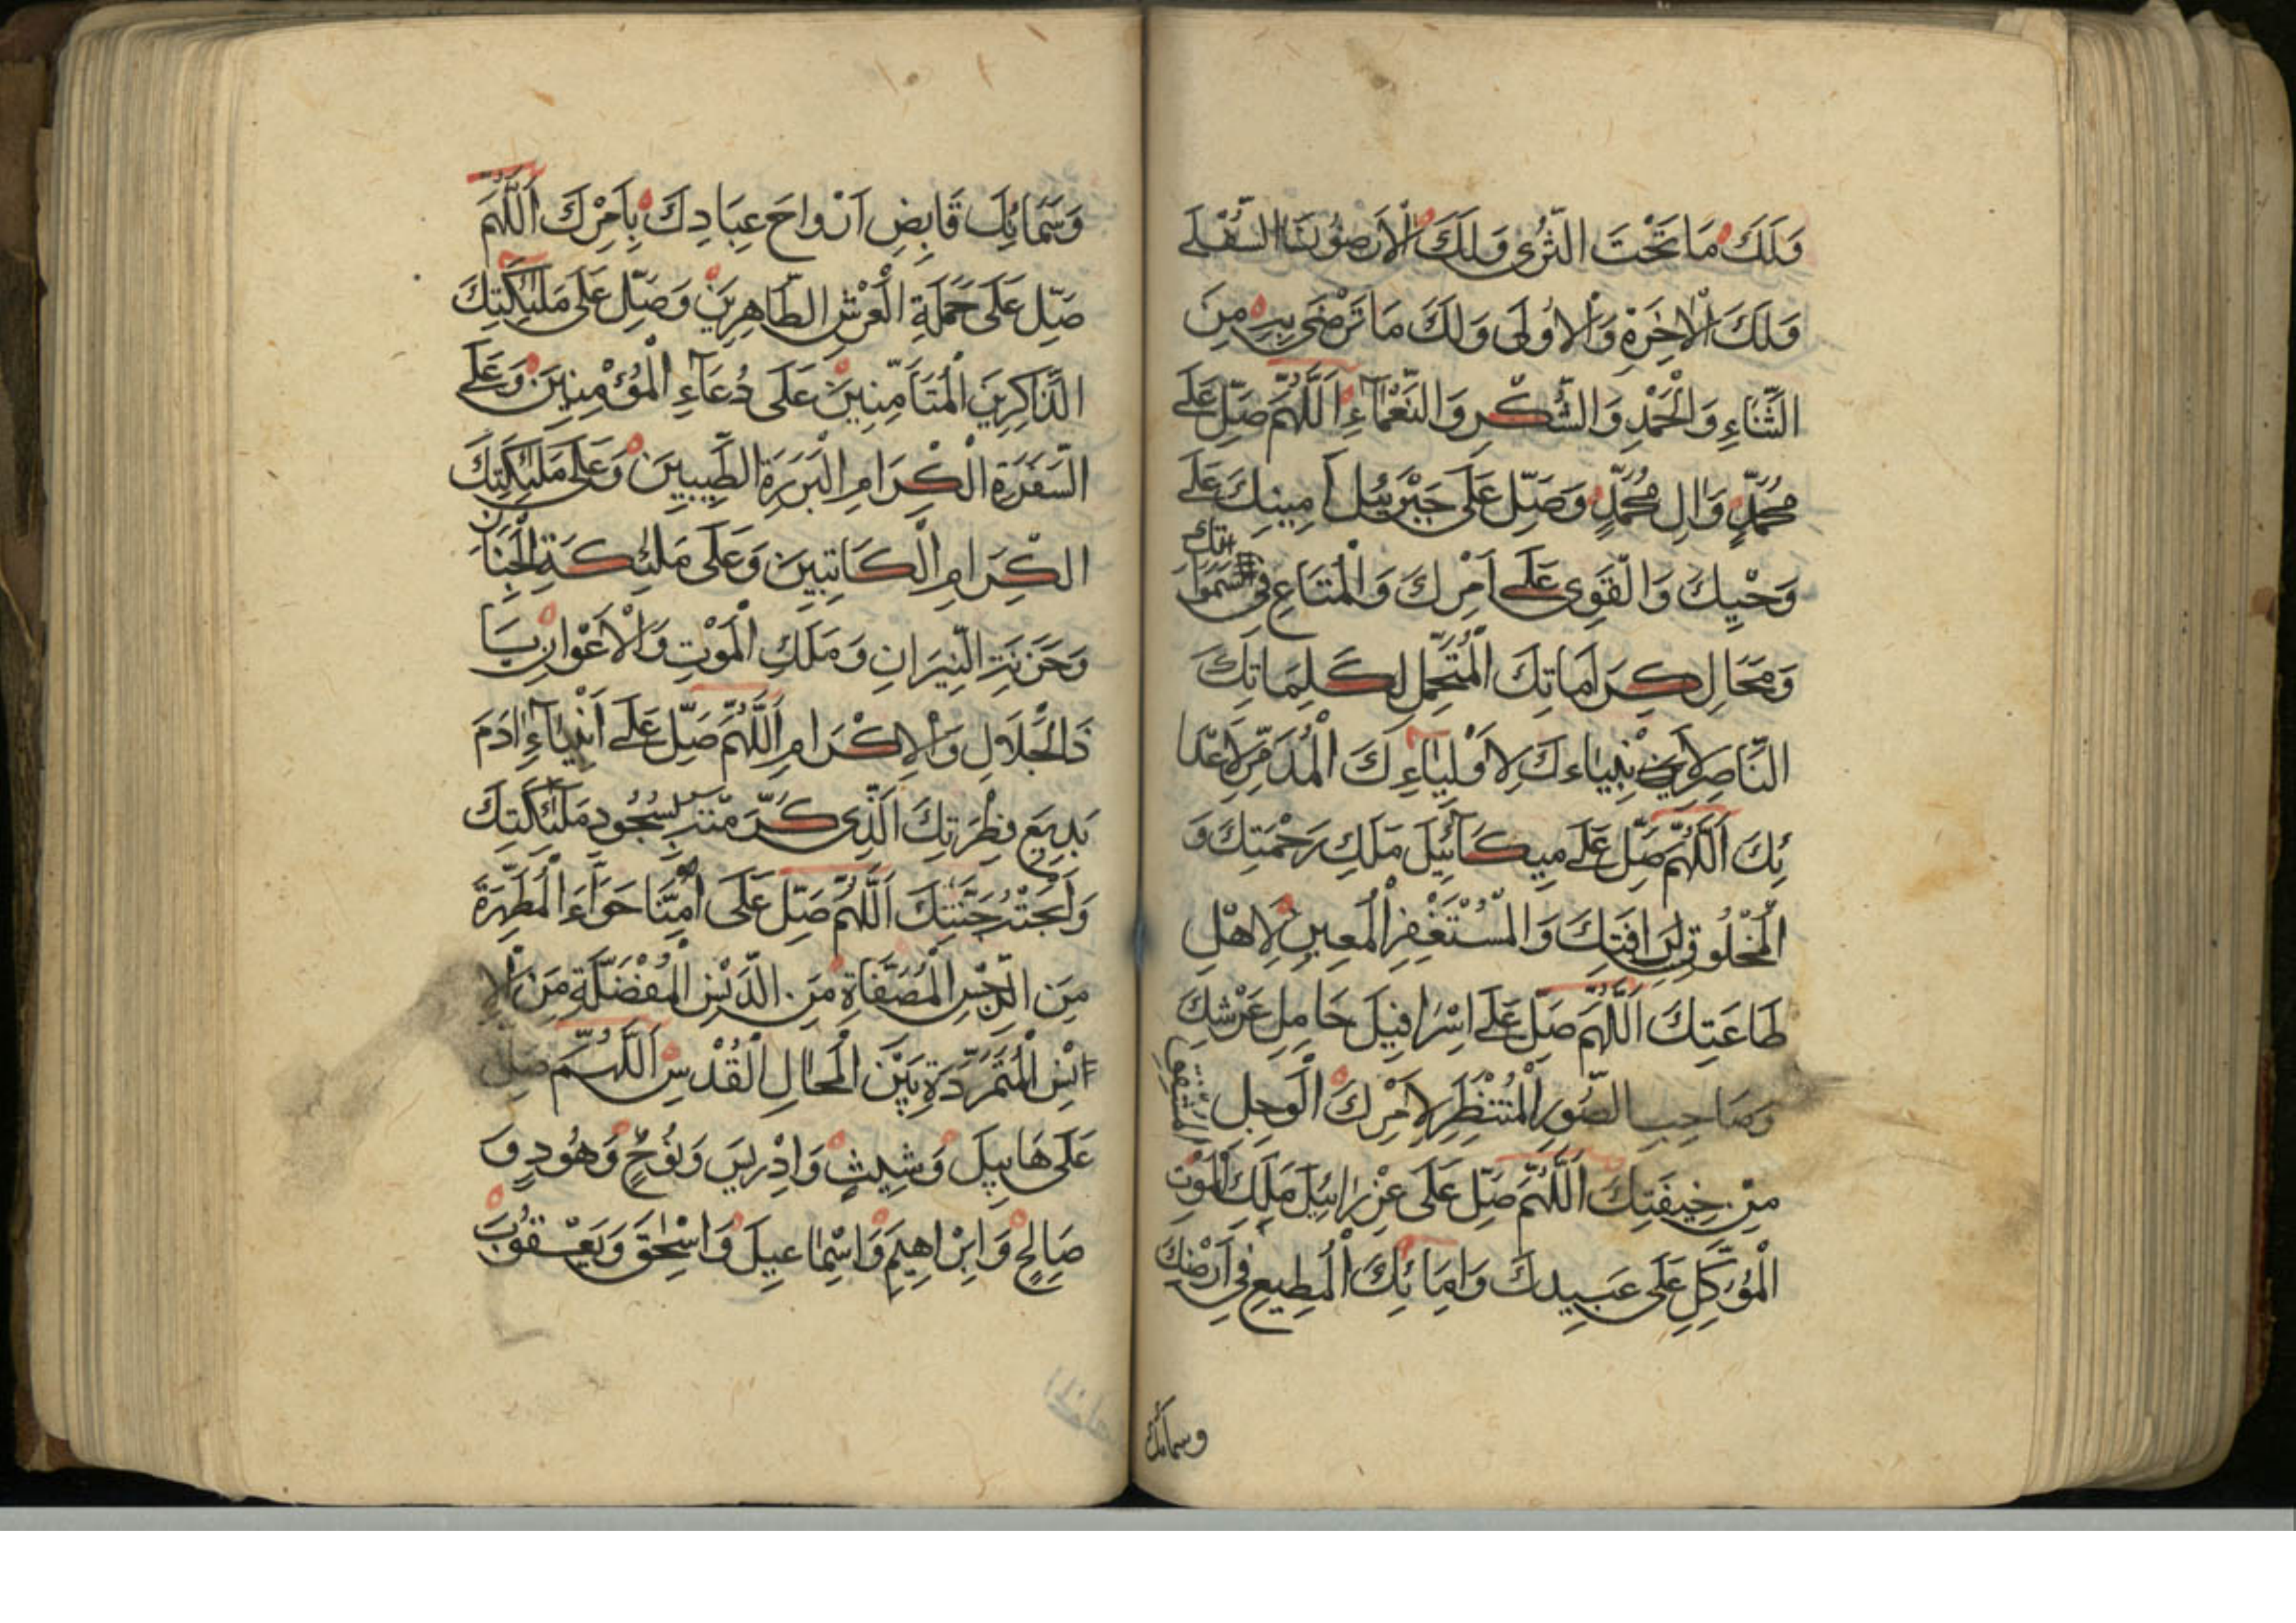 وَلَكَ مَا تَحْتَ الثَّرٰى وَلَكَ الْاَرَضُوْنَ السُّفْلٰى
وَلَكَ الْاٰخِرَةُ وَالْاُوْلَى وَلَكَ مَا تَرْضٰى بِهِ مِنَ
الثَّنَاءِ وَالْحَمْدِ وَالشُّكْرِ وَالنَّعْمَآءِ اَللّٰهُمَّ صَلِّ عَلٰى
مُحَمَّدٍ وَاٰلِ مُحَمَّدٍ وَصَلِّ عَلَى جَبْرَئِيلَ اَمِينِكَ عَلٰى
وَحْيِكَ وَالْقَوِى عَلٰى اَمْرِكَ وَالْمُتَاعِ فِى السَّمٰوَاتِكَ
وَمَحَالِ كِرَامَاتِكَ الْمُتَحَمِّلِ لِكَلِمَاتِكَ
النَّاصِرِ لِاَنْبِيَاءِكَ لِاَوْلِيَاءِكَ الْمُدَمِّرِ لِاَعْدَا
ئِكَ اَللّٰهُمَّ صَلِّ عَلٰى مِيكَآئِيلَ مَلَكِ رَحْمَتِكَ وَ
الْمَخْلُوقِ لِرَافَتِكَ وَالْمُسْتَغْفِرِ الْمُعِينِ لِاَهْلِ
طَاعَتِكَ اَللّٰهُمَّ صَلِّ عَلٰى اِسْرَافِيلَ حَامِلِ عَرْشِكَ
وَصَاحِبِ الصُّورِ الْمُنْتَظِرِ لِاَمْرِكَ الْوَجِلِ المشفق
مِنْ خِيفَتِكَ اَللّٰهُمَّ صَلِّ عَلَى عِزْرَائِيلَ مَلَكِ الْمَوْتِ
الْمُوَكَّلِ عَلَى عَبِيدِكَ وَاِمَائِكَ الْمُطِيعِ فِى اَرْضِكَ
وسمائك
وَسَمَائِكَ قَابِضِ اَرْوَاحَ عِبَادِكَ بِاَمْرِكَ اَللّٰهُمَّ
صَلِّ عَلَى حَمَلَةِ الْعَرْشِ الطَّاهِرِينَ وَصَلِّ عَلَى مَلٰئِكَتِكَ
الذَّاكِرِينَ الْمُتَأَمِّنِينَ عَلَى دُعَآءِ الْمُؤْمِنِينَ وَعَلٰى
السَّفَرَةِ الْكِرَامِ الْبَرَرَةِ الطَّيِّبِينَ وَعَلٰى مَلٰئِكَتِكَ
الْكِرَامِ الْكَاتِبِينَ وَعَلَى مَلٰئِكَةِ الْجِنَانِ
وَخَزَنَةِ النِّيرَانِ وَمَلَكِ الْمَوْتِ وَالْاَعْوَانِ يَا
ذَا الْجَلَالِ وَالْاِكْرَامِ اَللّٰهُمَّ صَلِّ عَلٰى اَبِيْنَا اٰدَمَ
بَدِيعِ فِطْرَتِكَ الَّذِى كَرَّمْتَهُ بِسُجُودِ مَلٰئِكَتِكَ
وَاَبَحْتَهُ جَنَّتَكَ اَللّٰهُمَّ صَلِّ عَلَى اُمِّنَا حَوَّآءَ الْمُطَهَّرَةِ
مِنَ الرِّجْسِ الْمُصَفَّاةِ مِنَ الدَّنَسِ الْمُفَضَّلَةِ مِنَ الْاِ
انْسِ الْمُتَمَرِّدَةِ بَيْنَ الْمَحَالِ الْقُدْسِ اَللّٰهُمَّ صَلِّ
عَلَى هَابِيلَ وَشِيثٍ وَاِدْرِيسَ وَنُوحٍ وَهُودٍ وَ
صَالِحٍ وَاِبْرَاهِيمَ وَاِسْمَاعِيلَ وَاِسْحٰقَ وَيَعْقُوْبَ